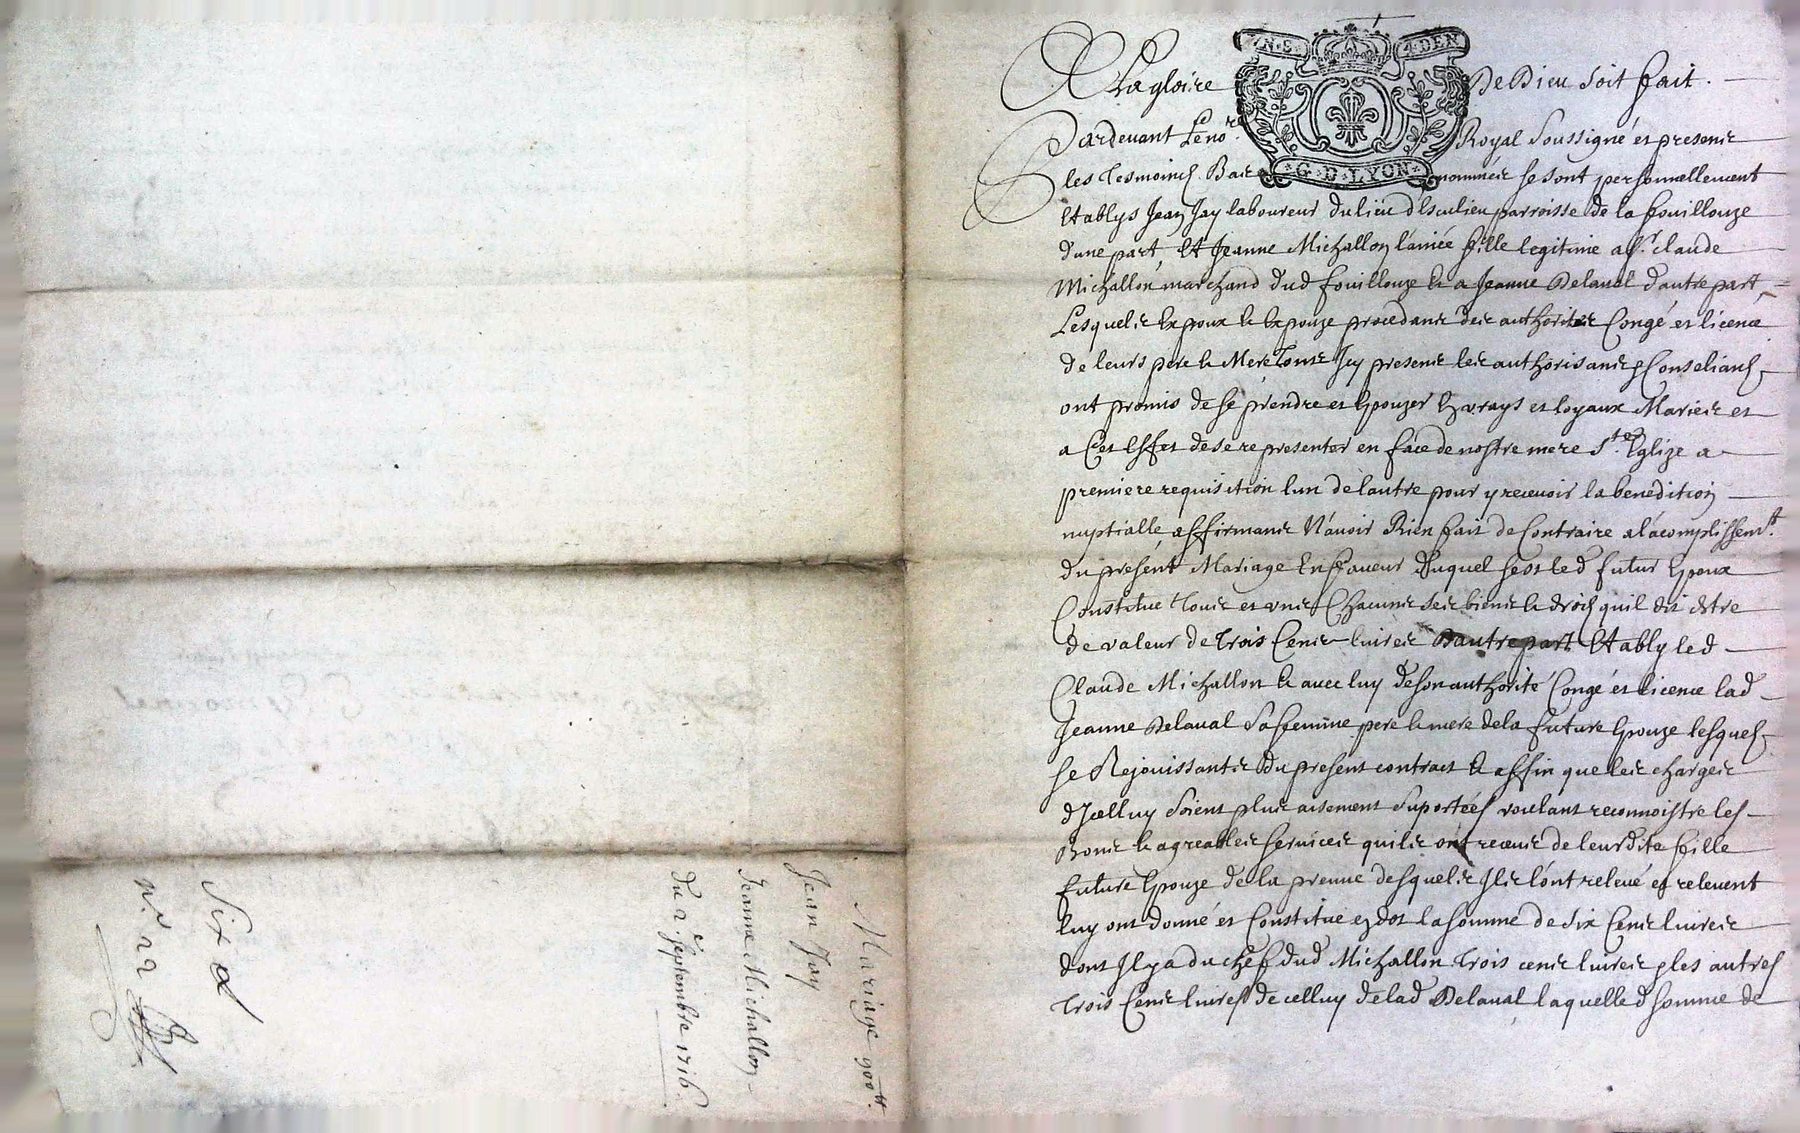 A La gloire De Dieu soit fait.
N. S. 4. DEN
G. D. LYON
Pardevant Le nore Royal Soussigné et presents
les tesmoins Bas nommés se sont personnellement
Etablys Jean Jay laboureur du lieu d'Esculieu parroisse de la fouillouze
d'une part, Et Jeanne Michallon l'ainée fille legitime a Sr. Claude
Michallon marchand dud fouillouze & a Jeanne Delaval d'autre part
Lesquels Expoux & Expouze procedants des authorites Congé et licence
de leurs pere & Mere tous Icy presents les authorisants & Conseliants
ont promis de se prendre et Epouzer En vrays et loyaux Mariés et
a Cet Effet de se representer en face de nostre mere Ste. Eglize a
premiere requisition l'un de l'autre pour y recevoir la benediction
nuptialle affirmants N'avoir Rien fait de Contraire a l'acomplissemt.
du présent Mariage En faveur Duquel sest led futur Epoux
Constitué tous et uns Chacuns ses biens & droits quil dit Estre
de valeur de trois Cents livres D'autre part Etably led
Claude Michallon & avec luy de son authorité Congé et licence lad
Jeanne Delaval Sa femme pere & mere de la future Epouze lesquels
se Rejouissants du present contract & affin que les charges
d'Icelluy soient plus aisement Suportées voulant reconnoistre les
Bons & agreables services quils ont receus de leurdite fille
future Epouze de la preuve desquels Ils l'ont relevé et relevent
luy ont donné et Constitué en dot la somme de six Cents livres
dont Il y a du chef dud Michallon trois cents livres & les autres
trois Cents livres de celluy de lad Delaval laquelle d somme de
Mariage 900tt.
Jean Jay
Jeanne Michallon
du 2e. septembre 1716.
Six
n°. 22